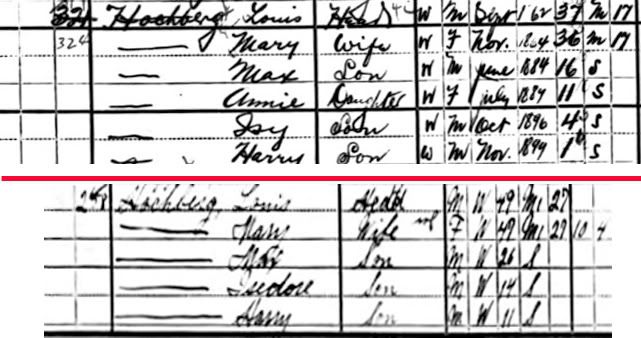 324 Hochberg, Louis Head W M Sept 1862 37 M 17
324 Mary Wife W F Nov. 1864 36 M 17
Max Son W M June 1884 16 S
Annie Daughter W F July 1889 11 S
Isy Son W M Oct 1896 4 S
Harry Son W M Nov. 1899 S
Hochberg, Louis Head M W 49 M1 27
Mary Wife F W 49 M1 27 10 4
Max Son M W 26 S
Isedore Son M W 14 S
Harry Son M W 11 S